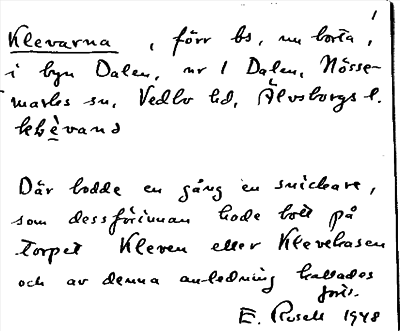 1
Klevarna, förr bs, nu borta,
i byn Dalen, nr 1 Dalen, Nösse-
marks sn, Vedbo hd, Älvsborgs l.
klèvana
Där bodde en gång en snickare,
som dessförinnan hade bott på
torpet Kleven eller Klevehasen
och av denna anledning kallades
förr.
E. Rosell 1948